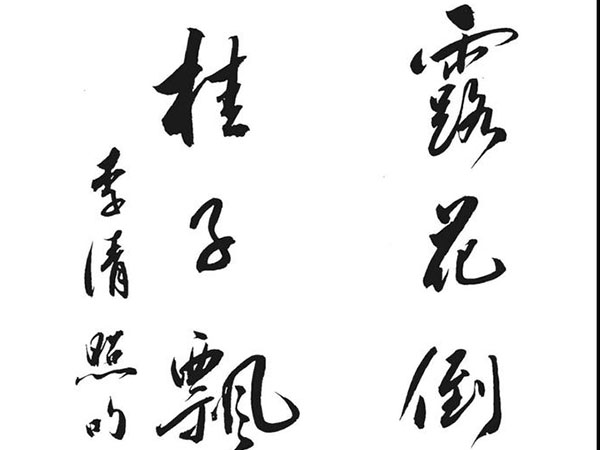 露花倒
桂子飄
李清照